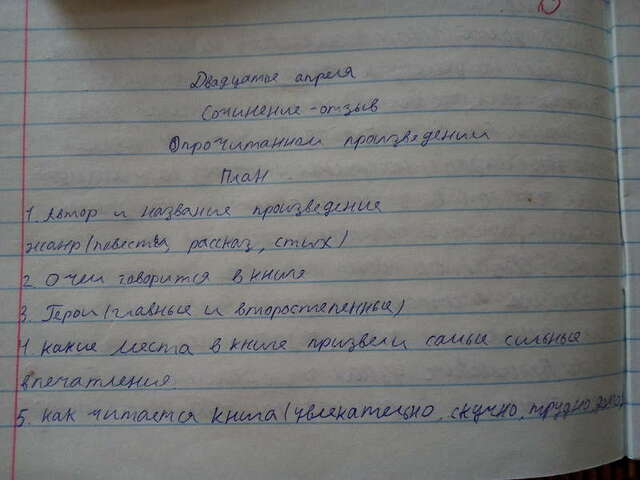 Двадцатое апреля
Сочинение-отзыв
Опрочитанном произведении
План
1. Автор и название произведение
жанр (повесть, рассказ, стих)
2. О чем говорится в книге
3. Герои (главные и второстепенные)
4. какие места в книге призвели самые сильные
впечатления
5. как читается книга (увлекательно, скучно, трудно,